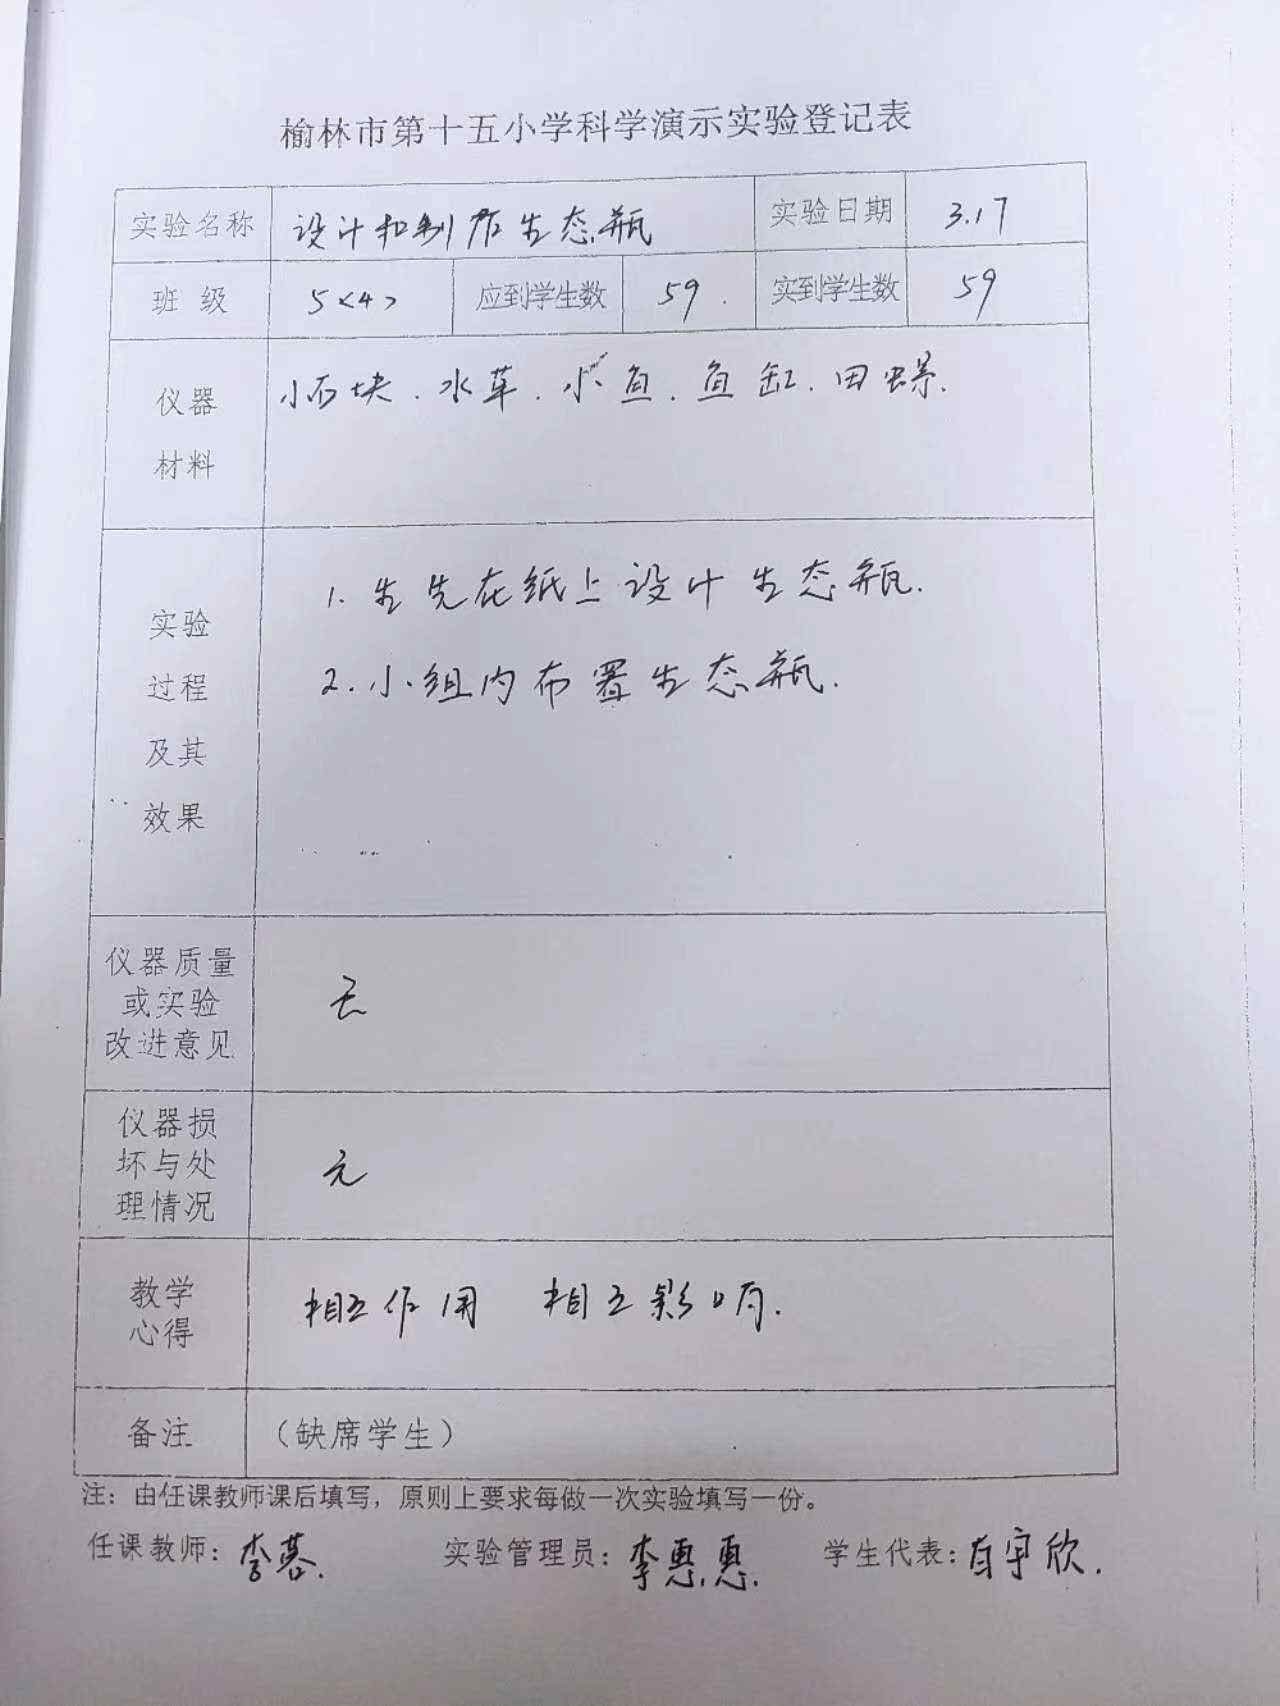 榆林市第十五小学科学演示实验登记表
实验名称 设计和制作生态瓶 实验日期 3.17
班 级 5<4> 应到学生数 59 实到学生数 59
仪器 小石块.水草.小鱼.鱼缸.田螺.
材料
1. 生先在纸上设计生态瓶.
实验
2. 小组内布置生态瓶.
过程
及其
效果
仪器质量
或实验 无
改进意见
仪器损
坏与处 无
理情况
教学 相互作用 相互影响.
心得
备注 (缺席学生)
注：由任课教师课后填写，原则上要求每做一次实验填写一份。
任课教师：李 实验管理员：李惠惠. 学生代表：宇欣.